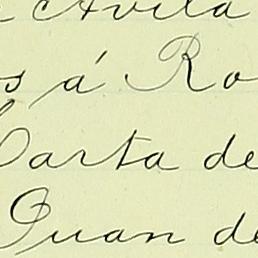 Avila
s á Ro
Carta de
Juan de